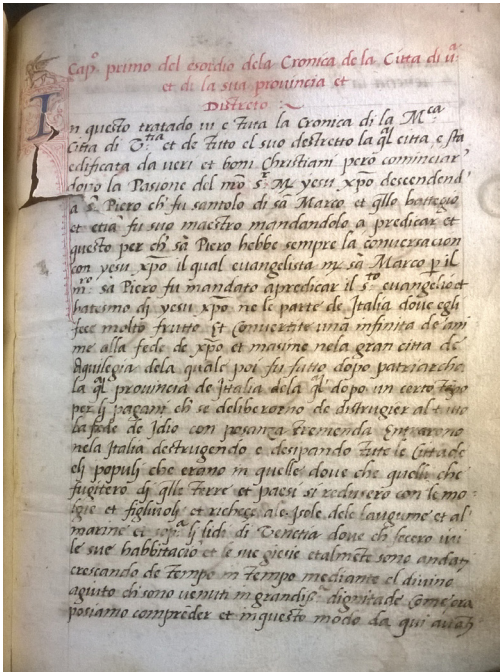 Capº primo del esordio dela Cronica de la Citta di ū.ᵃ
et di la sua provincia et
Distreto :~
In questo tratado vi e tuta la Cronica di la M.ᶜᵃ
Citta di V.ᵗⁱᵃ et de tuto el suo destretto la q̄l citta e sta
edificata da veri et boni Christiani pero cominciar
dopo la Pasione del mr̄o s.ʳ M. yesu xp̄o descendend
a s. Piero ch' fu santolo di sā Marco et q̄llo bategio
et etiā fu suo maestro mandandolo a predicar et
questo per ch' sā Piero hebbe sempre la conversacion
con yesu xp̄o il qual evangelista m. sā Marco p il
m.ʳᵒ sā Piero fu mandato apredicar il s.ᵗᵒ evangelio et
batesimo di yesu xp̄o ne le parte de Italia dove egli
fece molto frutto Et Convertite una infinita de ani
me alla fede de xp̄o et masime nela gran citta de
Aquilegia dela quale poi fu fatto dopo patriarcha
la q̄l provincia de Italia dela q̄l dopo un certo tēpo
per li pagani ch' se deliberorno de distrugier al tuto
la fede de Idio con posanza tremenda Entrarono
nela Italia destrugendo e desipando tute le Citade
eli populi che erano in quelle dove che quelli che
fugitero di q̄lle terre et paesi si redusero con le mo
gie et figlivoli et richece ale Isole dele laugume et al
marine et sop.ᵃ li lidi di Venetia dove ch' fecero ivi
le sue habbitacio et le sue giesie etalmēte sono andati
crescando de tempo in tempo mediante el divino
agiuto ch' sono venuti in grandiss.ᵃ dignitade Come ora
posiamo comprēder et inquesto modo da qui avāti